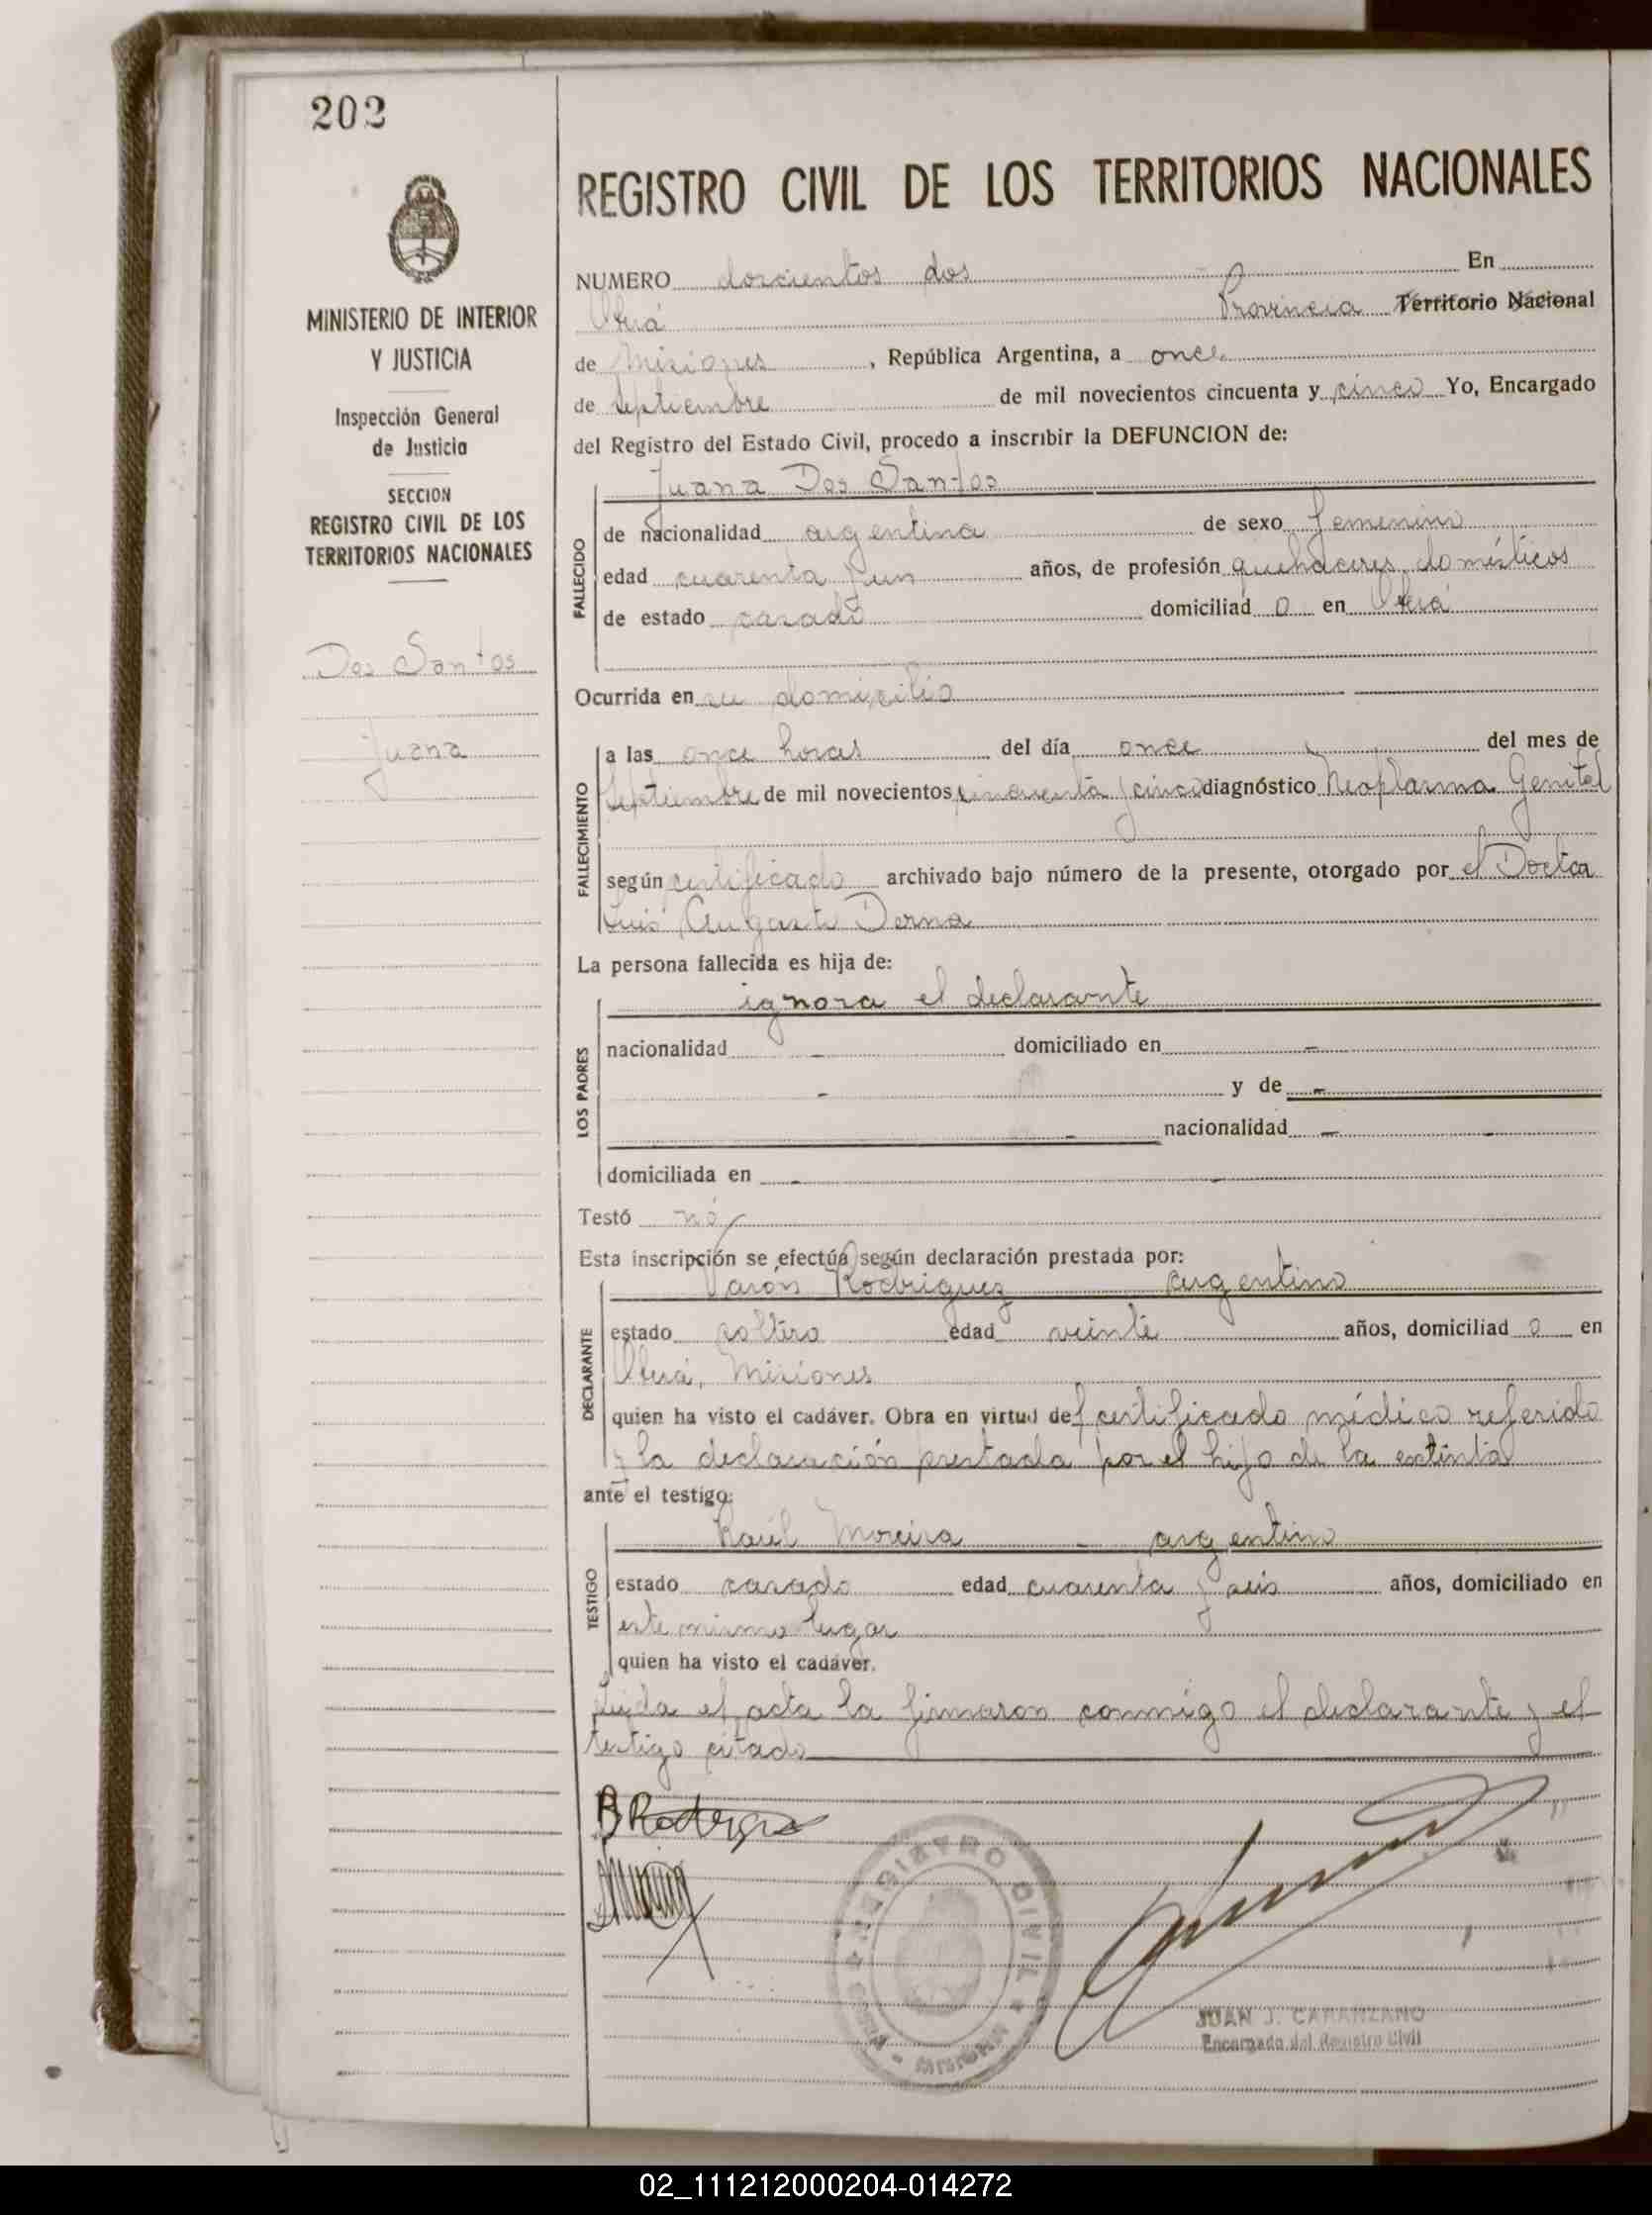 202
MINISTERIO DE INTERIOR
Y JUSTICIA
Inspección General
de Justicia
SECCION
REGISTRO CIVIL DE LOS
TERRITORIOS NACIONALES
Dos Santos
Juana
REGISTRO CIVIL DE LOS TERRITORIOS NACIONALES
NUMERO doscientos dos En
Oberá Provincia Territorio Nacional
de Misiones, República Argentina, a once
de septiembre de mil novecientos cincuenta y cinco Yo, Encargado
del Registro del Estado Civil, procedo a inscribir la DEFUNCION de:
FALLECIDO
Juana Dos Santos
de nacionalidad argentina de sexo femenino
edad cuarenta y un años, de profesión quehaceres domésticos
de estado casado domiciliad o en Oberá
Ocurrida en su domicilio
FALLECIMIENTO
a las once horas del día once del mes de
septiembre de mil novecientos cincuenta y cinco diagnóstico Neoplasma Genital
según certificado archivado bajo número de la presente, otorgado por el Doctor
Luis Augusto Derna
La persona fallecida es hija de:
LOS PADRES
ignora el declarante
nacionalidad - domiciliado en -
- y de -
- nacionalidad - -
domiciliada en - -
Testó no
Esta inscripción se efectúa según declaración prestada por:
DECLARANTE
Rodriguez argentino
estado soltero edad veinte años, domiciliad o en
Oberá, Misiones
quien ha visto el cadáver. Obra en virtud del certificado médico referido
y la declaración prestada por el hijo de la extinta
ante el testigo:
TESTIGO
Raúl Moreira - argentino
estado casado edad cuarenta y seis años, domiciliado en
este mismo lugar
quien ha visto el cadáver.
Leida el acta la firmaron conmigo el declarante y el
testigo citado
REGISTRO CIVIL
JUAN J. CARANZANO
Encargado del Registro Civil
02_111212000204-014272